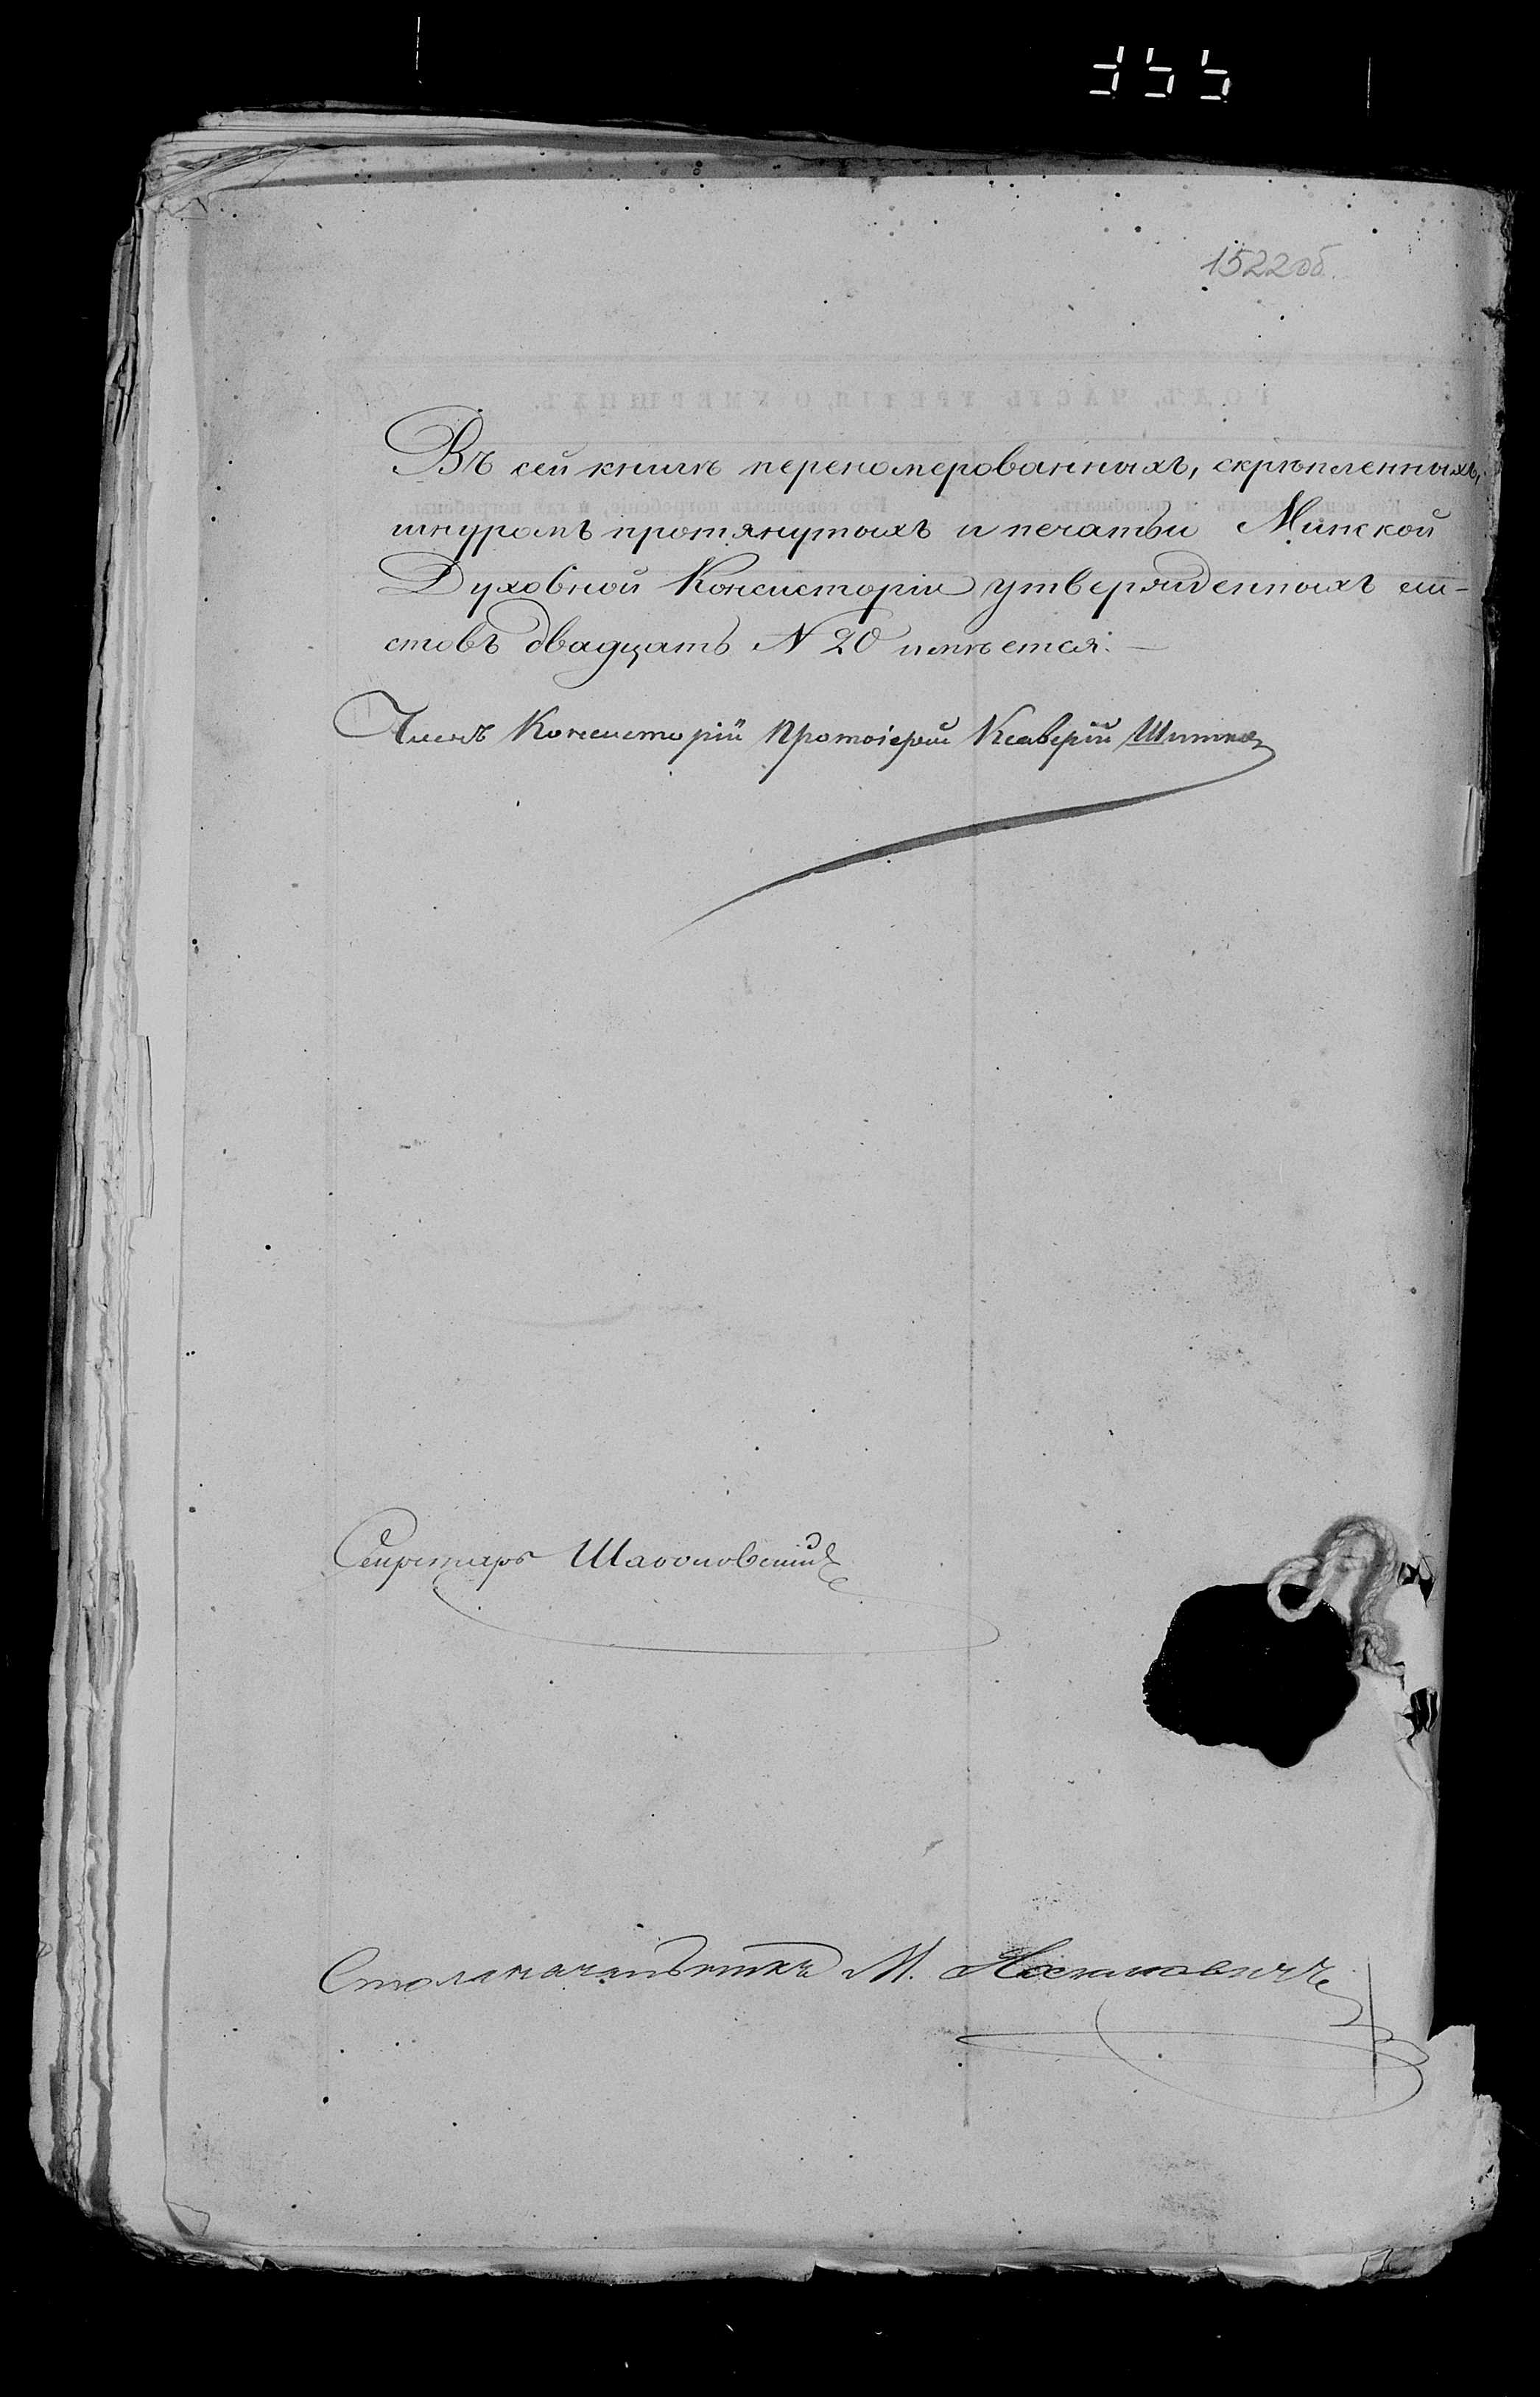 355
1522об.
Въ сей книгѣ переномерованныхъ, скрѣпленныхъ,
шнуромъ протянутыхъ и печатью Минской
Духовной Консисторіи утвержденныхъ ли-
стовъ двадцать N 20 имѣется:—
Членъ Консисторіи Протоіерей Ксаверій
Секретарь
Столоначальникъ М.
ГОДЪ, ЧАСТЬ ТРЕТІЯ, О УМЕРШИХЪ.
Кто исповѣдывалъ и пріобщалъ.
Кто совершалъ погребеніе и гдѣ погребены.